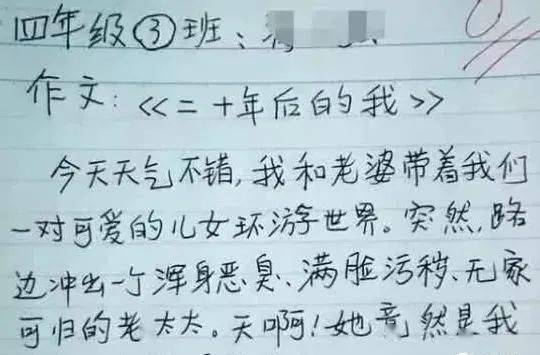 四年级③班:
作文:<<二十年后的我>>
今天天气不错,我和老婆带着我们
一对可爱的儿女环游世界。突然,路
边冲出一个浑身恶臭、满脸污秽、无家
可归的老太太。天啊!她竟然是我